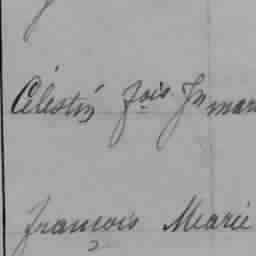 Célestin fois Jn mari
françois Marie